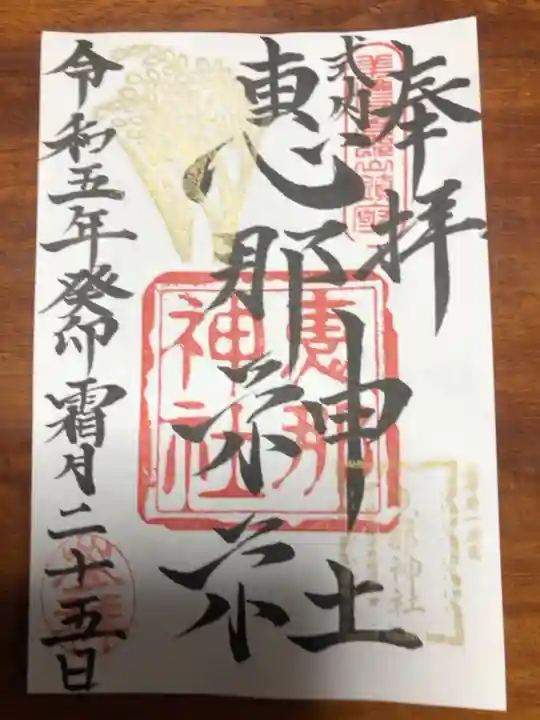 奉拝
式内
恵那神社
令和五年癸卯霜月二十五日
恵那
神社